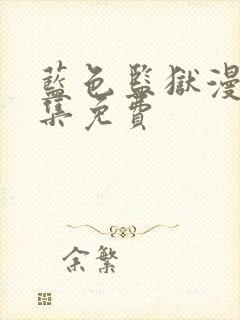 藍色監獄漫
集免費
余繁